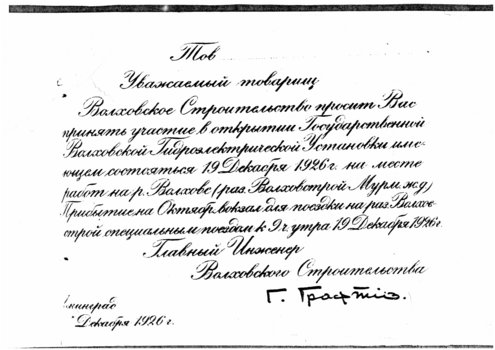 Тов
Уважаемый товарищ
Волховское Строительство просит Вас
принять участие в открытии Государственной
Волховской Гидроэлектрической Установки име-
ющем состояться 19 Декабря 1926 г. на месте
работ на р. Волхове (раз. Волховстрой Мурм. ж.д)
Прибытие на Октябр. вокзал для поездки на раз. Волхов-
строй специальным поездом к 9 г. утра 19 Декабря 1926 г.
Главный Инженер
Волховского Строительства
Г. Графтио.
енинград
Декабря 1926 г.